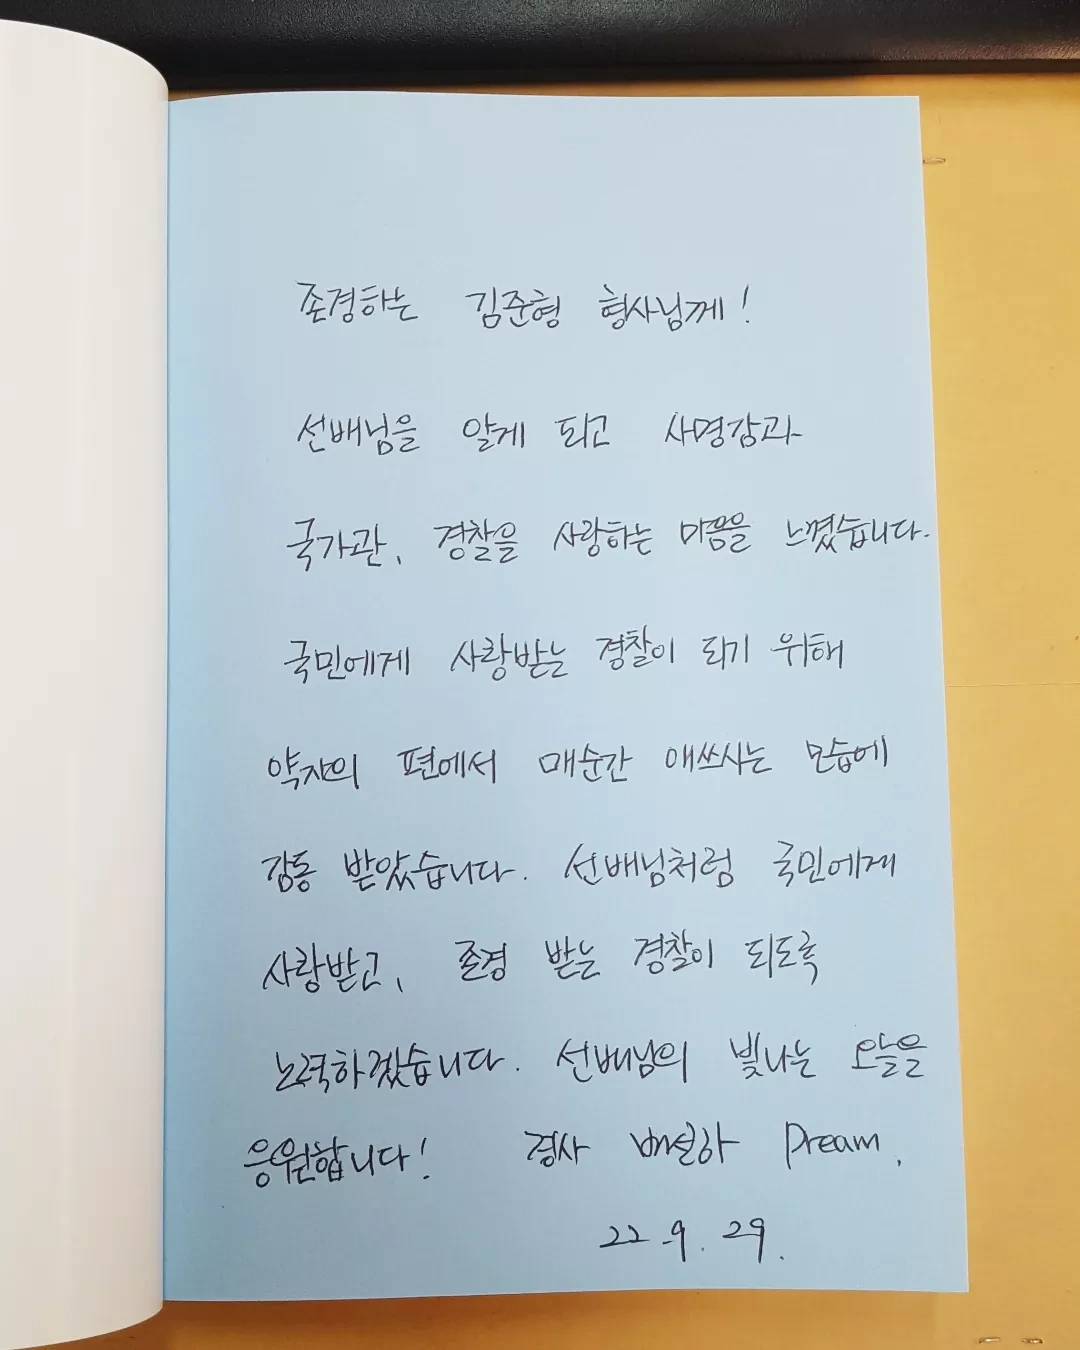 존경하는 김준형 형사님께!
선배님을 알게 되고 사명감과
국가관, 경찰을 사랑하는 마음을 느꼈습니다.
국민에게 사랑받는 경찰이 되기 위해
약자의 편에서 매순간 애쓰시는 모습에
감동 받았습니다. 선배님처럼 국민에게
사랑받고, 존경 받는 경찰이 되도록
노력하겠습니다. 선배님의 빛나는 오늘을
응원합니다! 경사 배설하 Dream.
22. 9. 29.